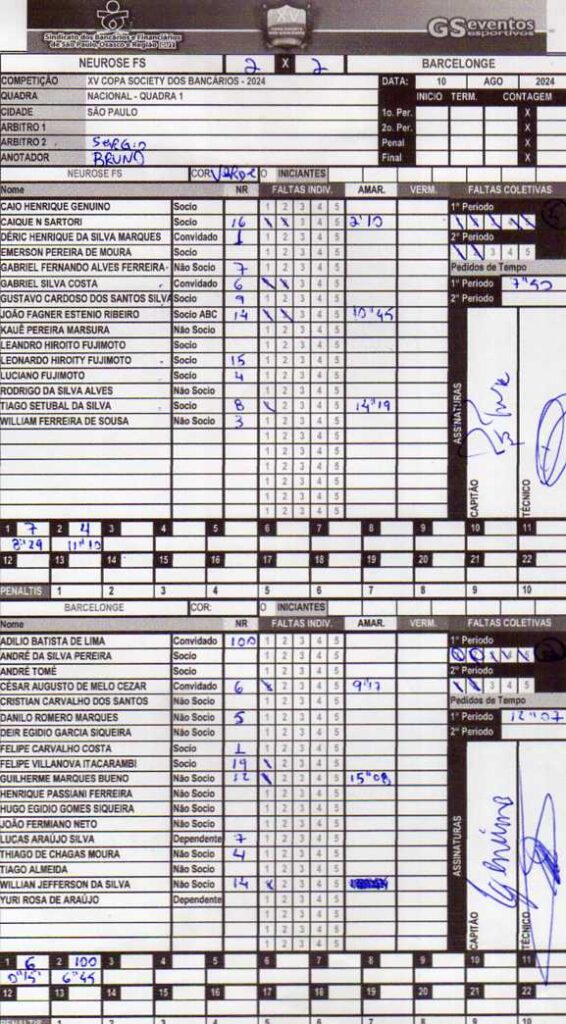 Sindicato dos Bancários e Financiários
de São Paulo, Osasco e Região
XV
GS eventos
esportivos
NEUROSE FS 2 X 2 BARCELONGE
COMPETIÇÃO XV COPA SOCIETY DOS BANCÁRIOS - 2024 DATA: 10 AGO 2024
QUADRA NACIONAL - QUADRA 1 INICIO TERM. CONTAGEM
CIDADE SÃO PAULO 1o. Per. X
ARBITRO 1 2o. Per. X
ARBITRO 2 SERGIO Penal X
ANOTADOR BRUNO Final X
NEUROSE FS COR: VERDE O INICIANTES
Nome NR FALTAS INDIV. AMAR. VERM. FALTAS COLETIVAS
CAIO HENRIQUE GENUINO Socio 1 2 3 4 5 1º Periodo
CAIQUE N SARTORI Socio 16 3 4 5 2"10
DÉRIC HENRIQUE DA SILVA MARQUES Convidado 1 1 2 3 4 5 2º Periodo
EMERSON PEREIRA DE MOURA Socio 1 2 3 4 5 3 4 5
GABRIEL FERNANDO ALVES FERREIRA Não Socio 7 1 2 3 4 5 Pedidos de Tempo
GABRIEL SILVA COSTA Convidado 6 3 4 5 1º Periodo
GUSTAVO CARDOSO DOS SANTOS SILVA Socio 9 1 2 3 4 5 2º Periodo
JOÃO FAGNER ESTENIO RIBEIRO Socio ABC 14 3 4 5 10"45
KAUÊ PEREIRA MARSURA Não Socio 1 2 3 4 5
LEANDRO HIROITO FUJIMOTO Socio 1 2 3 4 5
LEONARDO HIROITY FUJIMOTO Socio 15 1 2 3 4 5
LUCIANO FUJIMOTO Socio 4 1 2 3 4 5
RODRIGO DA SILVA ALVES Não Socio 1 2 3 4 5
TIAGO SETUBAL DA SILVA Socio 8 2 3 4 5 14"19
WILLIAM FERREIRA DE SOUSA Não Socio 3 1 2 3 4 5
1 2 3 4 5
1 2 3 4 5
1 2 3 4 5
1 2 3 4 5
1 2 3 4 5
1 2 3 4 5
ASSINATURAS
CAPITÃO
TÉCNICO
1 7 2 4 3 4 5 6 7 8 9 10 11
8"29 11"10
12 13 14 15 16 17 18 19 20 21 22
PENALTIS 1 2 3 4 5 6 7 8 9 10
BARCELONGE COR: O INICIANTES
Nome NR FALTAS INDIV. AMAR. VERM. FALTAS COLETIVAS
ADILIO BATISTA DE LIMA Convidado 100 1 2 3 4 5 1º Periodo
ANDRÉ DA SILVA PEREIRA Socio 1 2 3 4 5
ANDRÉ TOMÉ Socio 1 2 3 4 5 2º Periodo
CÉSAR AUGUSTO DE MELO CEZAR Convidado 6 2 3 4 5 9"17 3 4 5
CRISTIAN CARVALHO DOS SANTOS Não Socio 1 2 3 4 5 Pedidos de Tempo
DANILO ROMERO MARQUES Não Socio 5 1 2 3 4 5 1º Periodo 12"07
DEIR EGIDIO GARCIA SIQUEIRA Não Socio 1 2 3 4 5 2º Periodo
FELIPE CARVALHO COSTA Socio 1 1 2 3 4 5
FELIPE VILLANOVA ITACARAMBI Socio 19 2 3 4 5
GUILHERME MARQUES BUENO Não Socio 12 2 3 4 5 15"08
HENRIQUE PASSIANI FERREIRA Não Socio 1 2 3 4 5
HUGO EGIDIO GOMES SIQUEIRA Não Socio 1 2 3 4 5
JOÃO FERMIANO NETO Não Socio 1 2 3 4 5
LUCAS ARAÚJO SILVA Dependente 7 1 2 3 4 5
THIAGO DE CHAGAS MOURA Não Socio 4 1 2 3 4 5
TIAGO ALMEIDA Não Socio 1 2 3 4 5
WILLIAN JEFFERSON DA SILVA Não Socio 14 2 3 4 5
YURI ROSA DE ARAÚJO Dependente 1 2 3 4 5
1 2 3 4 5
1 2 3 4 5
1 2 3 4 5
ASSINATURAS
CAPITÃO
TÉCNICO
1 6 2 100 3 4 5 6 7 8 9 10 11
0"15 6"45
12 13 14 15 16 17 18 19 20 21 22
PENALTIS 1 2 3 4 5 6 7 8 9 10